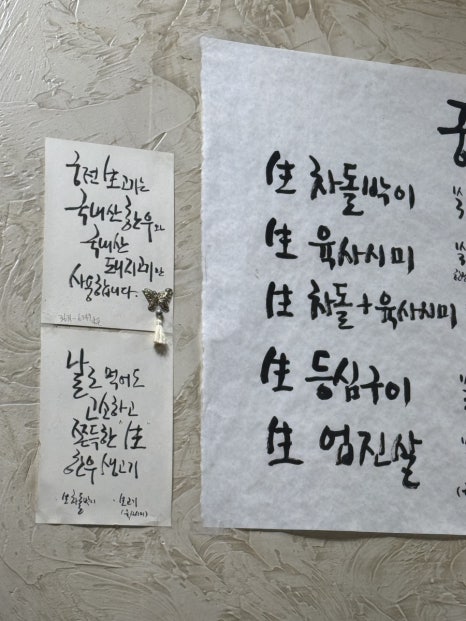 궁전 生고기는
국내산 한우와
국내산
돼지고기만
사용합니다.
날로 먹어도
고소하고
쫀득한 生
한우 생고기
生차돌박이 · 生고기
(육사시미)
生 차돌박이
生 육사시미
生 차돌+육사시미
生 등심구이
生 업진살
궁